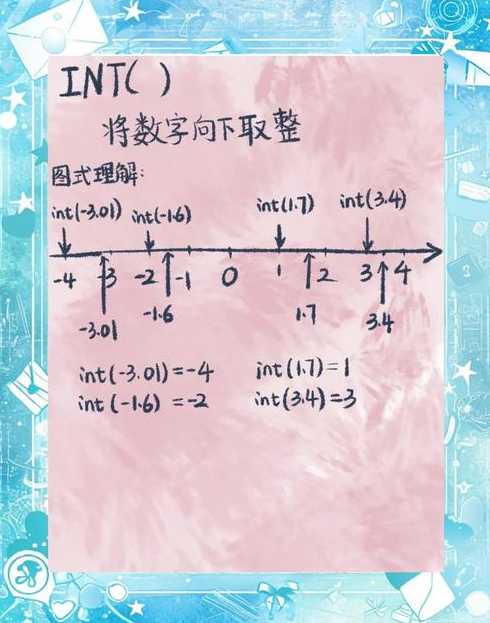 INT( )
将数字向下取整
图式理解:
int(-3.01) int(-1.6) int(1.7) int(3.4)
-4 -3 -2 -1 0 1 2 3 4
-3.01 -1.6 1.7 3.4
int(-3.01)=-4 int(1.7)=1
int(-1.6)=-2 int(3.4)=3